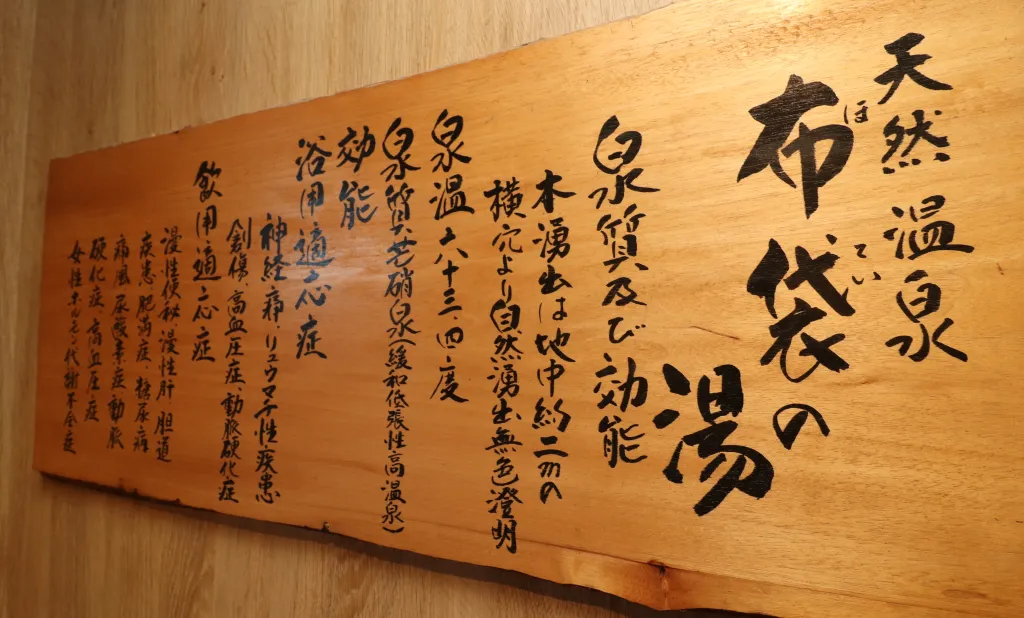 天然温泉
ほてい
布袋の
湯
泉質及び効能
本湧出は地中約二mの
横穴より自然湧出無色澄明
泉温 六十三.四度
泉質 芒硝泉(緩和低張性高温泉)
効能
浴用適応症
神経痛、リュウマチ性疾患
創傷、高血圧症、動脈硬化症
飲用適応症
慢性便秘、慢性肝、胆道
疾患、肥満症、糖尿病
痛風、尿酸素症、動脈
硬化症、高血圧症
女性ホルモン代謝不全症